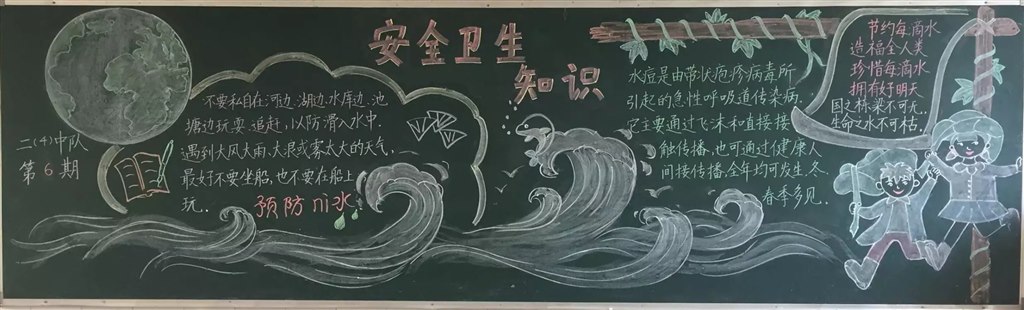 安全卫生
知识
二(4)中队
第6期
不要私自在河边、湖边、水库边、池
塘边玩耍、追赶，以防滑入水中.
遇到大风大雨、大浪或雾太大的天气，
最好不要坐船，也不要在船上
玩.
预防川水
水痘是由带状疱疹病毒所
引起的急性呼吸道传染病，
它主要通过飞沫和直接接
触传播，也可通过健康人
间接传播，全年均可发生，冬、
春季多见.
节约每滴水
造福全人类
珍惜每滴水
拥有好明天
国之栋梁不可无，
生命之水不可枯.